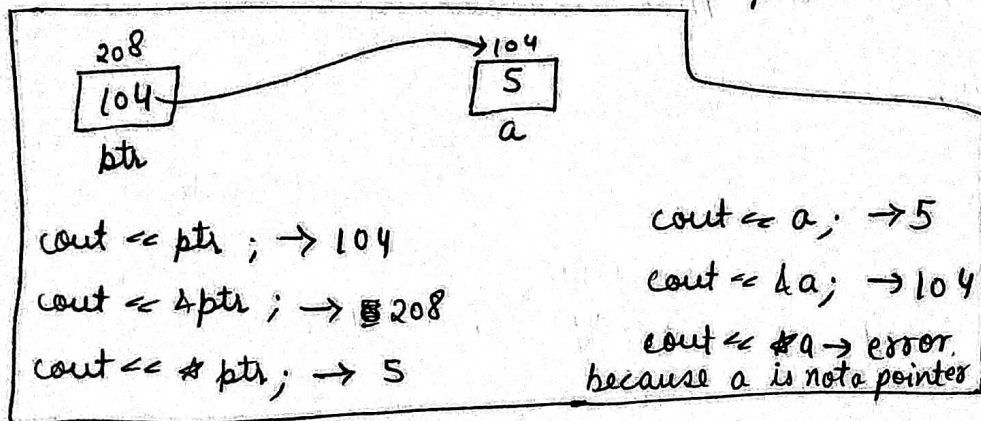 208
104
104
5
ptr
a
cout << ptr ; → 104
cout << &ptr ; → 208
cout << * ptr ; → 5
cout << a; → 5
cout << &a; → 104
cout << *a → error.
because a is not a pointer